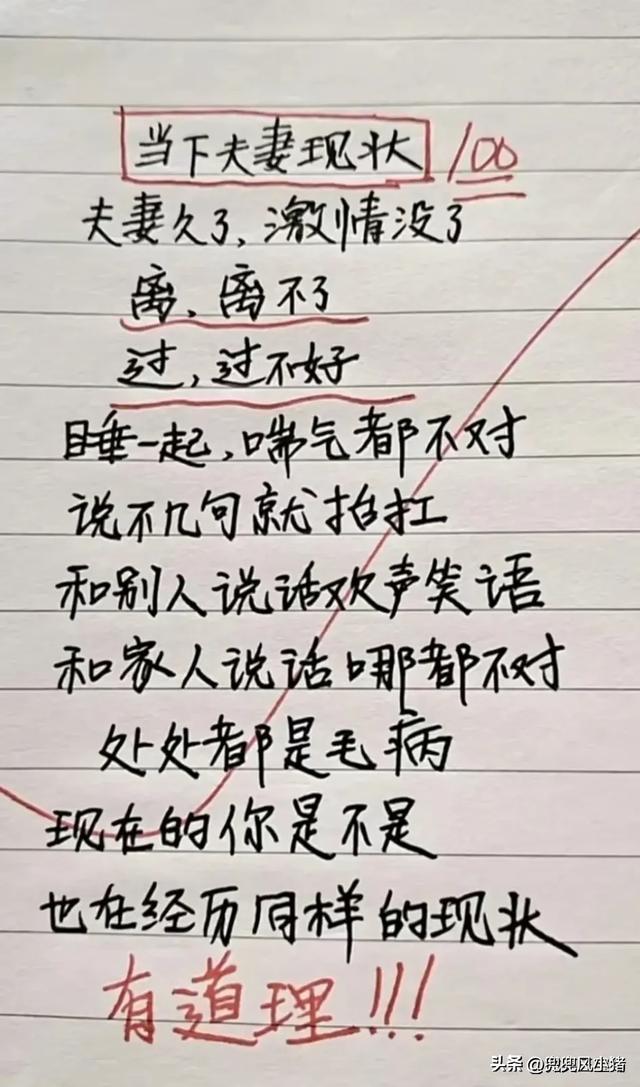 当下夫妻现状 100
夫妻久了,激情没了
离,离不了
过,过不好
睡一起,喘气都不对
说不几句就抬扛
和别人说话欢声笑语
和家人说话哪都不对
处处都是毛病
现在的你是不是
也在经历同样的现状
有道理!!!
头条 @兜兜风生猪